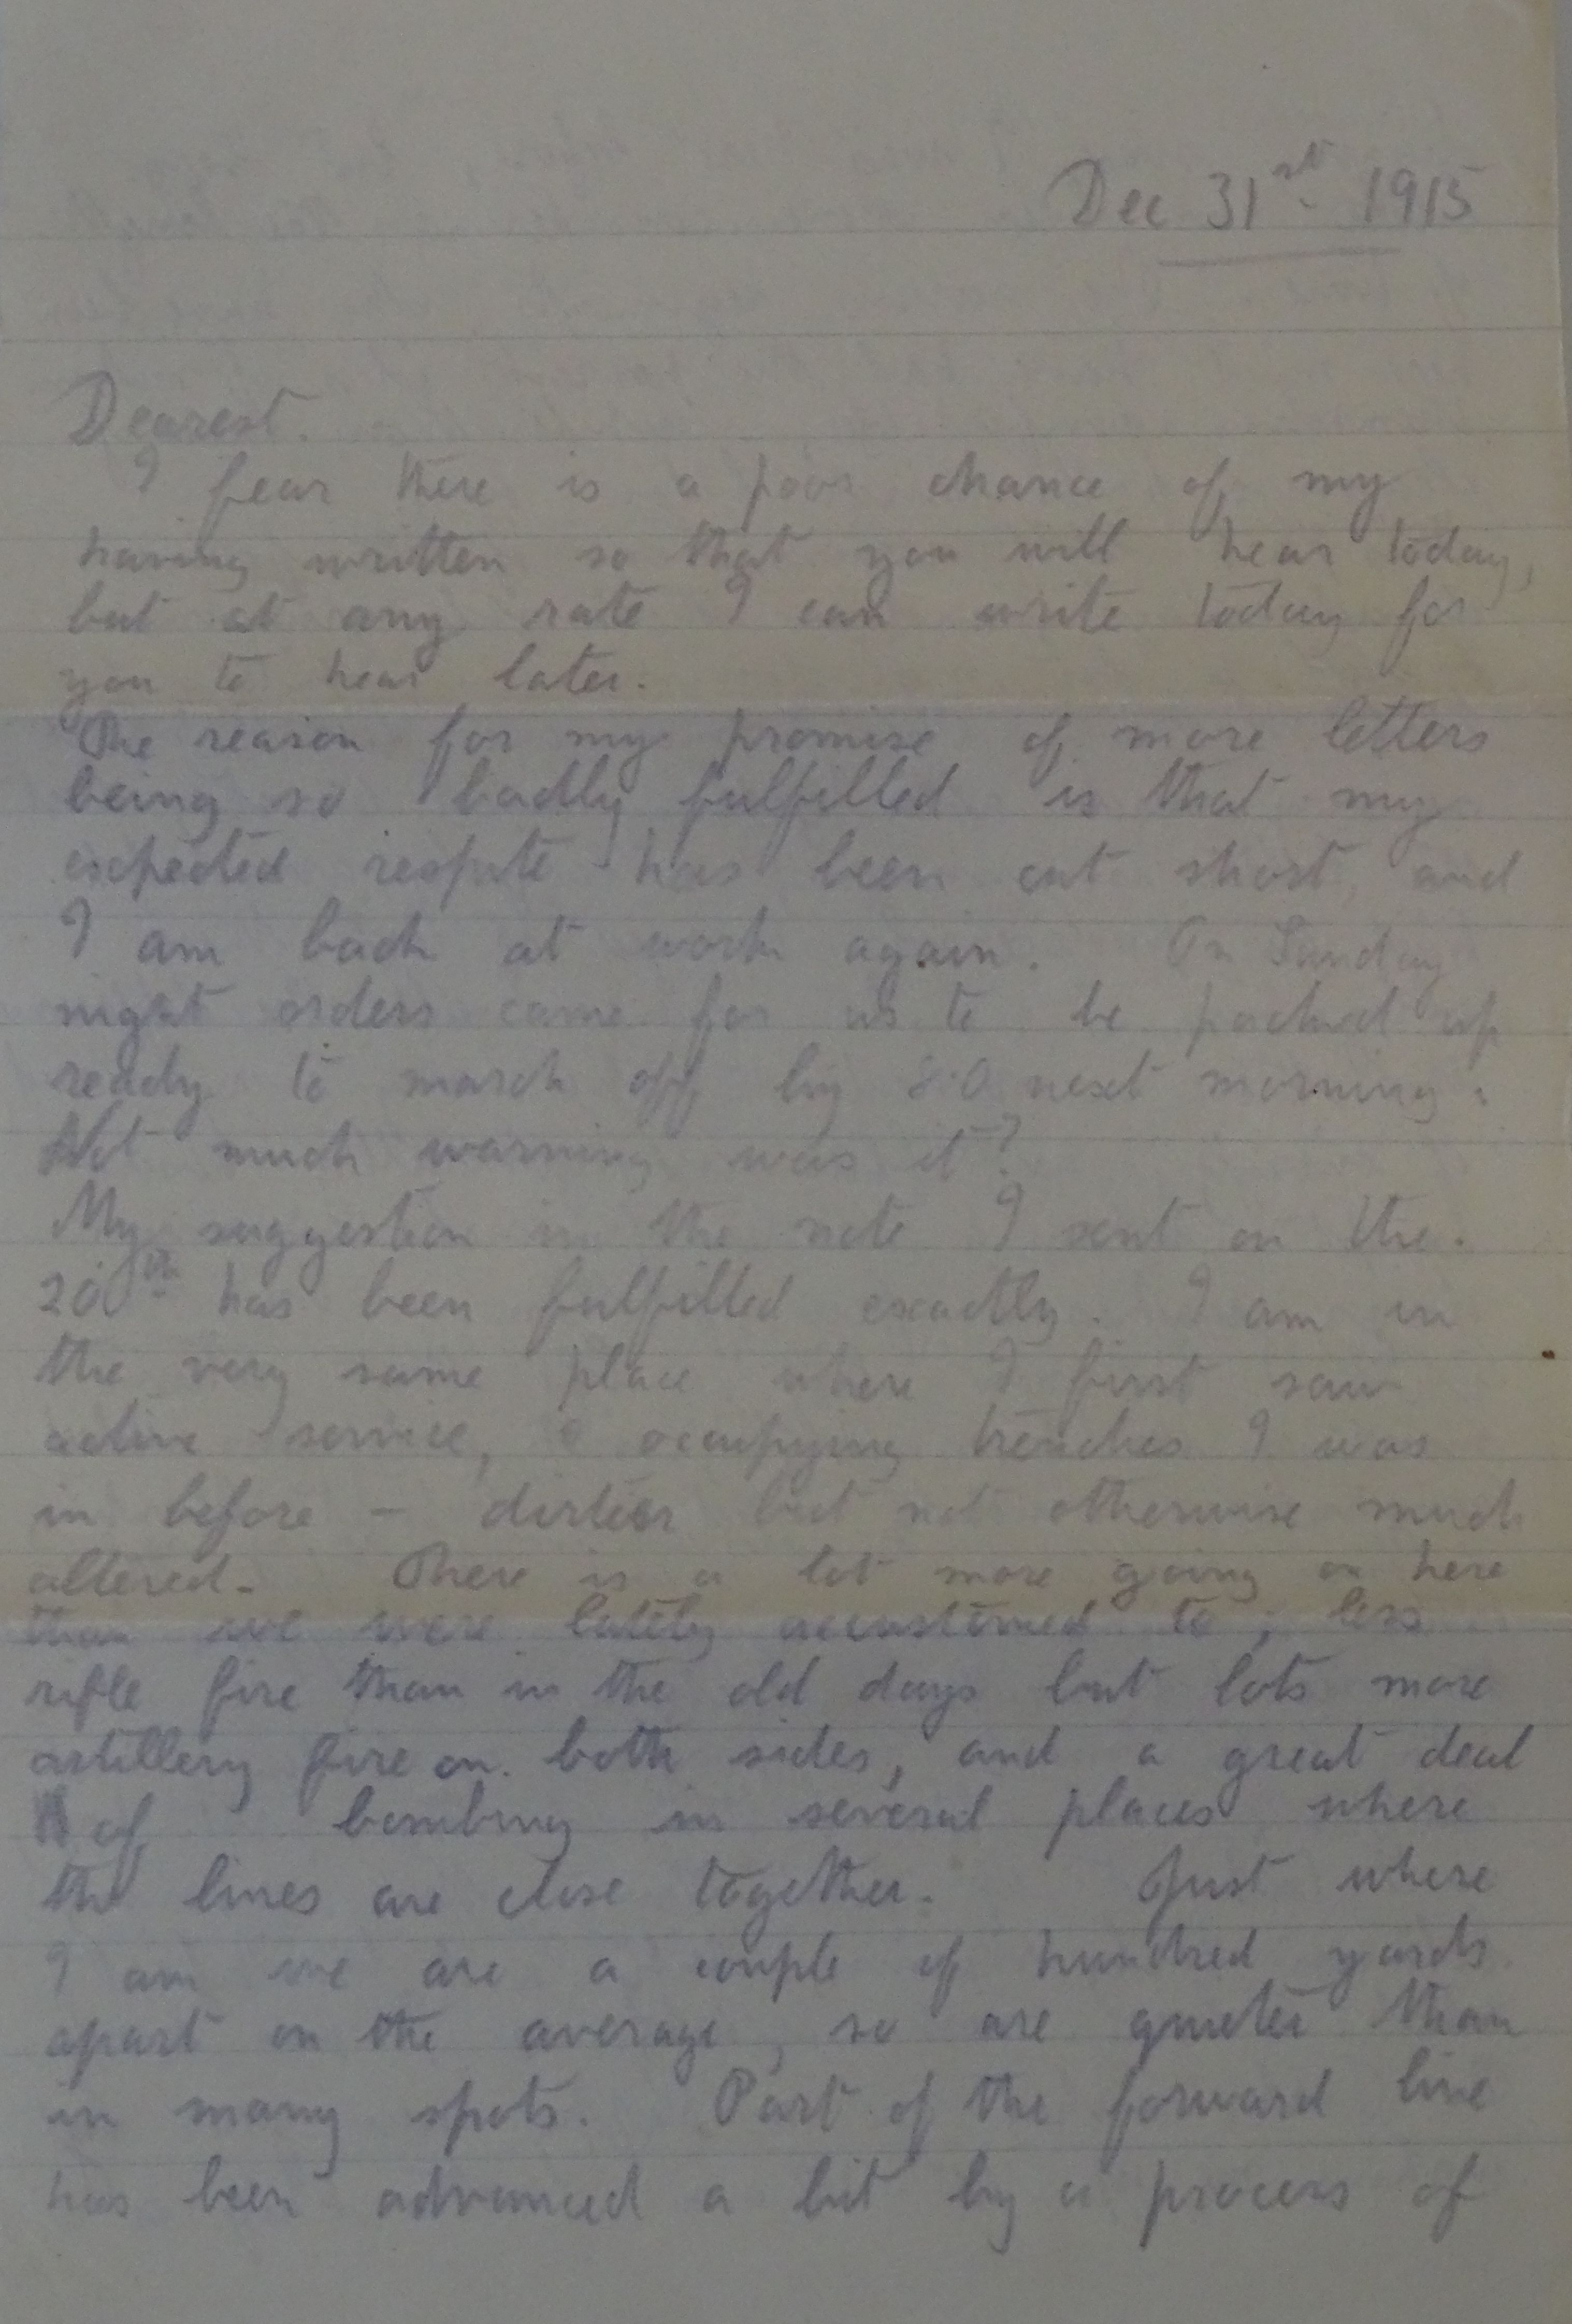 Dec 31st 1915
Dearest.
I fear there is a poor chance of my
having written so that you will hear today,
but at any rate I can write today for
you to hear later.
The reason for my promise of more letters
being so badly fulfilled is that my
expected respite has been cut short, and
I am back at work again. On Sunday
night orders came for us to be packed up
ready to march off by 8.0 next morning.
Not much warning was it?
My suggestion in the note I sent on the
20th has been fulfilled exactly. I am in
the very same place where I first saw
active service, & occupying trenches I was
in before – dirtier but not otherwise much
altered. There is a lot more going on here
than we were lately accustomed to; less
rifle fire than in the old days but lots more
artillery fire on both sides, and a great deal
of bombing in several places where
the lines are close together. Just where
I am we are a couple of hundred yards
apart on the average, so are quieter than
in many spots. Part of the forward line
has been advanced a bit by a process of